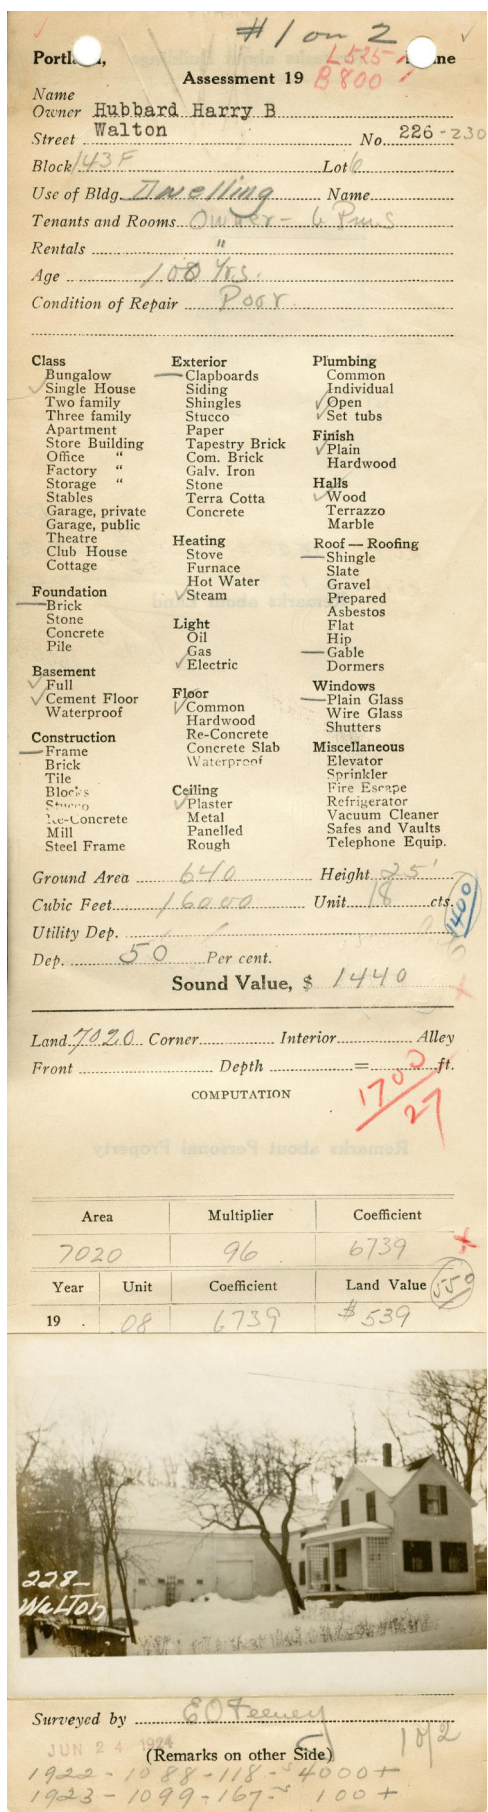 #1 on 2
Portland, Maine
L525
Assessment 19 B800
Name
Owner Hubbard Harry B
Street Walton No. 226-230
Block 143F Lot 6
Use of Bldg. Dwelling Name
Tenants and Rooms Owner - 6 Rms
Rentals "
Age 108 Yrs.
Condition of Repair Poor
Class
Bungalow
Single House
Two family
Three family
Apartment
Store Building
Office "
Factory "
Storage "
Stables
Garage, private
Garage, public
Theatre
Club House
Cottage
Foundation
Brick
Stone
Concrete
Pile
Basement
Full
Cement Floor
Waterproof
Construction
Frame
Brick
Tile
Blocks
Stucco
Re-Concrete
Mill
Steel Frame
Exterior
Clapboards
Siding
Shingles
Stucco
Paper
Tapestry Brick
Com. Brick
Galv. Iron
Stone
Terra Cotta
Concrete
Heating
Stove
Furnace
Hot Water
Steam
Light
Oil
Gas
Electric
Floor
Common
Hardwood
Re-Concrete
Concrete Slab
Waterproof
Ceiling
Plaster
Metal
Panelled
Rough
Plumbing
Common
Individual
Open
Set tubs
Finish
Plain
Hardwood
Halls
Wood
Terrazzo
Marble
Roof — Roofing
Shingle
Slate
Gravel
Prepared
Asbestos
Flat
Hip
Gable
Dormers
Windows
Plain Glass
Wire Glass
Shutters
Miscellaneous
Elevator
Sprinkler
Fire Escape
Refrigerator
Vacuum Cleaner
Safes and Vaults
Telephone Equip.
Ground Area 640 Height 25'
Cubic Feet 16000 Unit 18 cts.
1400
Utility Dep.
Dep. 50 Per cent.
Sound Value, $ 1440
Land 7020 Corner Interior Alley
Front Depth = ft.
COMPUTATION
1700
27
Area Multiplier Coefficient
7020 96 6739
Year Unit Coefficient Land Value
550
19 .08 6739 $539
228-
Walton
Surveyed by E O Feeney
JUN 24 1924
(Remarks on other Side)
1 of 2
1922 - 1088 - 118 - 4000 +
1923 - 1099 - 167 - 100 +